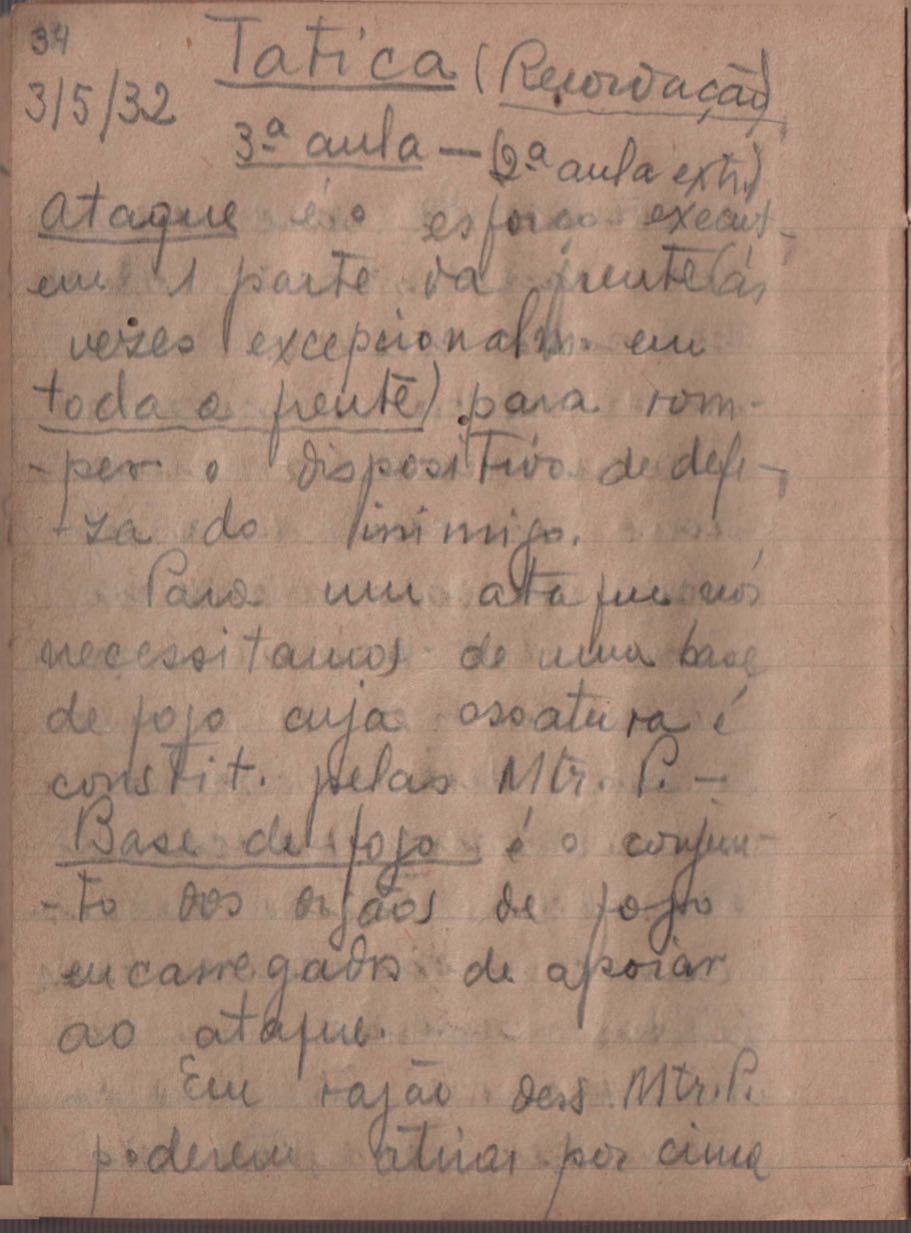 34
Tatica (Recordação)
3/5/32
3ª aula — (2ª aula extr.)
Ataque é o esforço execut.
em 1 parte da frente (ás
vezes excepcionalm. em
toda a frente) para rom-
-per o dispositivo de defe-
-za do inimigo.
Para um ataque nós
necessitamos de uma base
de fogo cuja ossatura é
constit. pelas Mtr. P. —
Base de fogo é o conjun-
-to dos orgãos de fogo
encarregados de apoiar
ao ataque.
Em razão das Mtr. P.
poderem atirar por cima